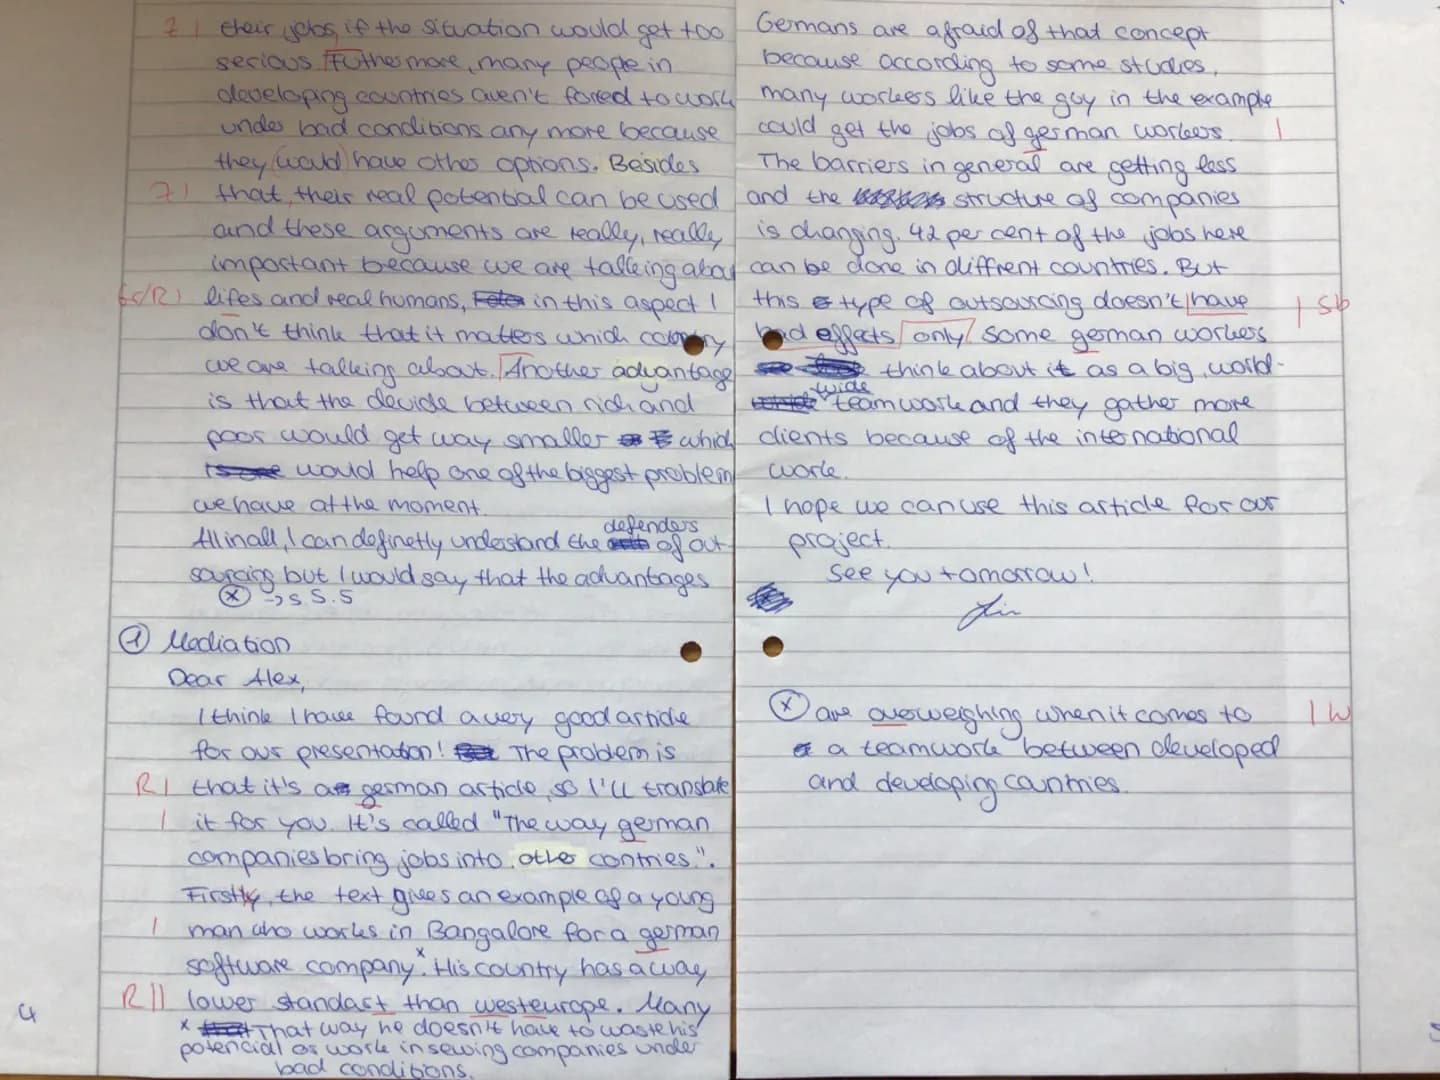 Z | their jobs, if the situation would get too
serious. Futhermore, many people in
developing countries aren't forced to work
under bad conditions any more because
they (would) have other options. Besides
Z | that, their real potential can be used
and these arguments are really, really
important because we are talking abou
Gr/R | lifes and real humans, in this aspect I
don't think that it matters which country
we are talking about. Another advantage
is that the devide between rich and
poor would get way smaller which
would help one of the biggest problem
we have at the moment.
defenders
All in all, I can definetly understand the of out-
sourcing but I would say that the advantages
(x) → s S. 5
① Mediation
Dear Alex,
I think I have found a very good article
for our presentation! The problem is
R | that it's a german article, so I'll translate
| it for you. It's called "The way german
companies bring jobs into other contries.".
Firstly, the text gives an example of a young
| man who works in Bangalore for a german
software company.x His country has a way
R || lower standart than westeurope. Many
x That way he doesn't have to waste his
potencial or work in sewing companies under
bad conditions.
4
Germans are afraid of that concept
because according to some studies,
many workers like the guy in the example
could get the jobs of german workers. |
The barriers in general are getting less
and the structure of companies
is changing. 42 per cent of the jobs here
can be done in diffrent countries. But
this type of outsourcing doesn't have | Sb
bad effects only some german workers
think about it as a big, world-
wide
teamwork and they gather more
clients because of the international
work.
I hope we can use this article for our
project.
See you tomorrow!
(x) are overweighing when it comes to | W
a teamwork between developed
and developing countries.